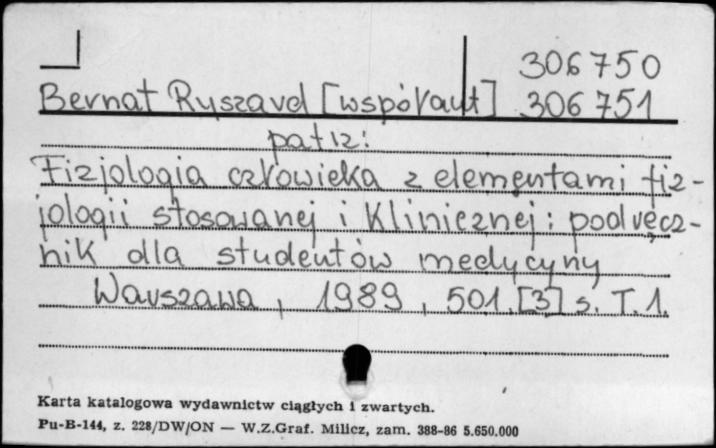 306750
Bernat Ryszard [współaut] 306751
patrz:
Fizjologia człowieka z elementami fiz-
jologii stosowanej i klinicznej: podręcz-
nik dla studentów medycyny
Warszawa, 1989, 501,[3] s. T.1.
Karta katalogowa wydawnictw ciągłych i zwartych.
Pu-B-144, z. 228/DW/ON — W.Z.Graf. Milicz, zam. 388-86 5.650.000